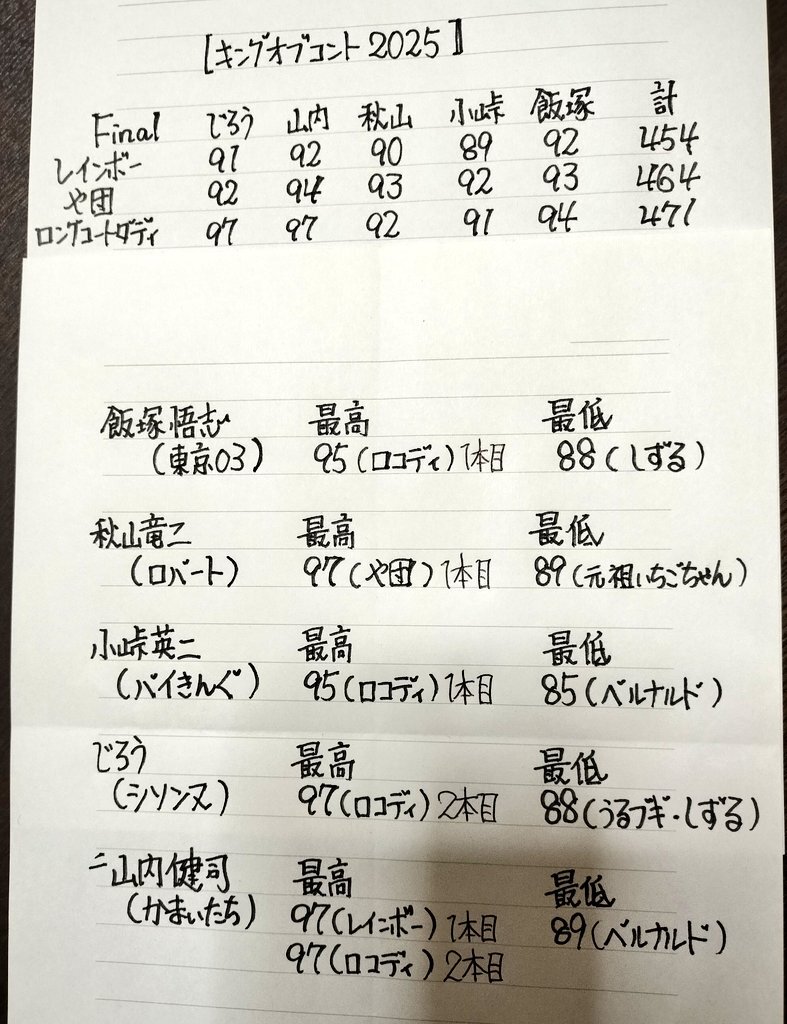 [キングオブコント2025]
Final じろう 山内 秋山 小峠 飯塚 計
レインボー 91 92 90 89 92 454
や団 92 94 93 92 93 464
ロングコートダディ 97 97 92 91 94 471
飯塚悟志 最高 最低
(東京03) 95(ロコディ)1本目 88(しずる)
秋山竜二 最高 最低
(ロバート) 97(や団)1本目 89(元祖いちごちゃん)
小峠英二 最高 最低
(バイきんぐ) 95(ロコディ)1本目 85(ベルナルド)
じろう 最高 最低
(シソンヌ) 97(ロコディ)2本目 88(うるブギ・しずる)
山内健司 最高 最低
(かまいたち) 97(レインボー)1本目 89(ベルナルド)
97(ロコディ)2本目